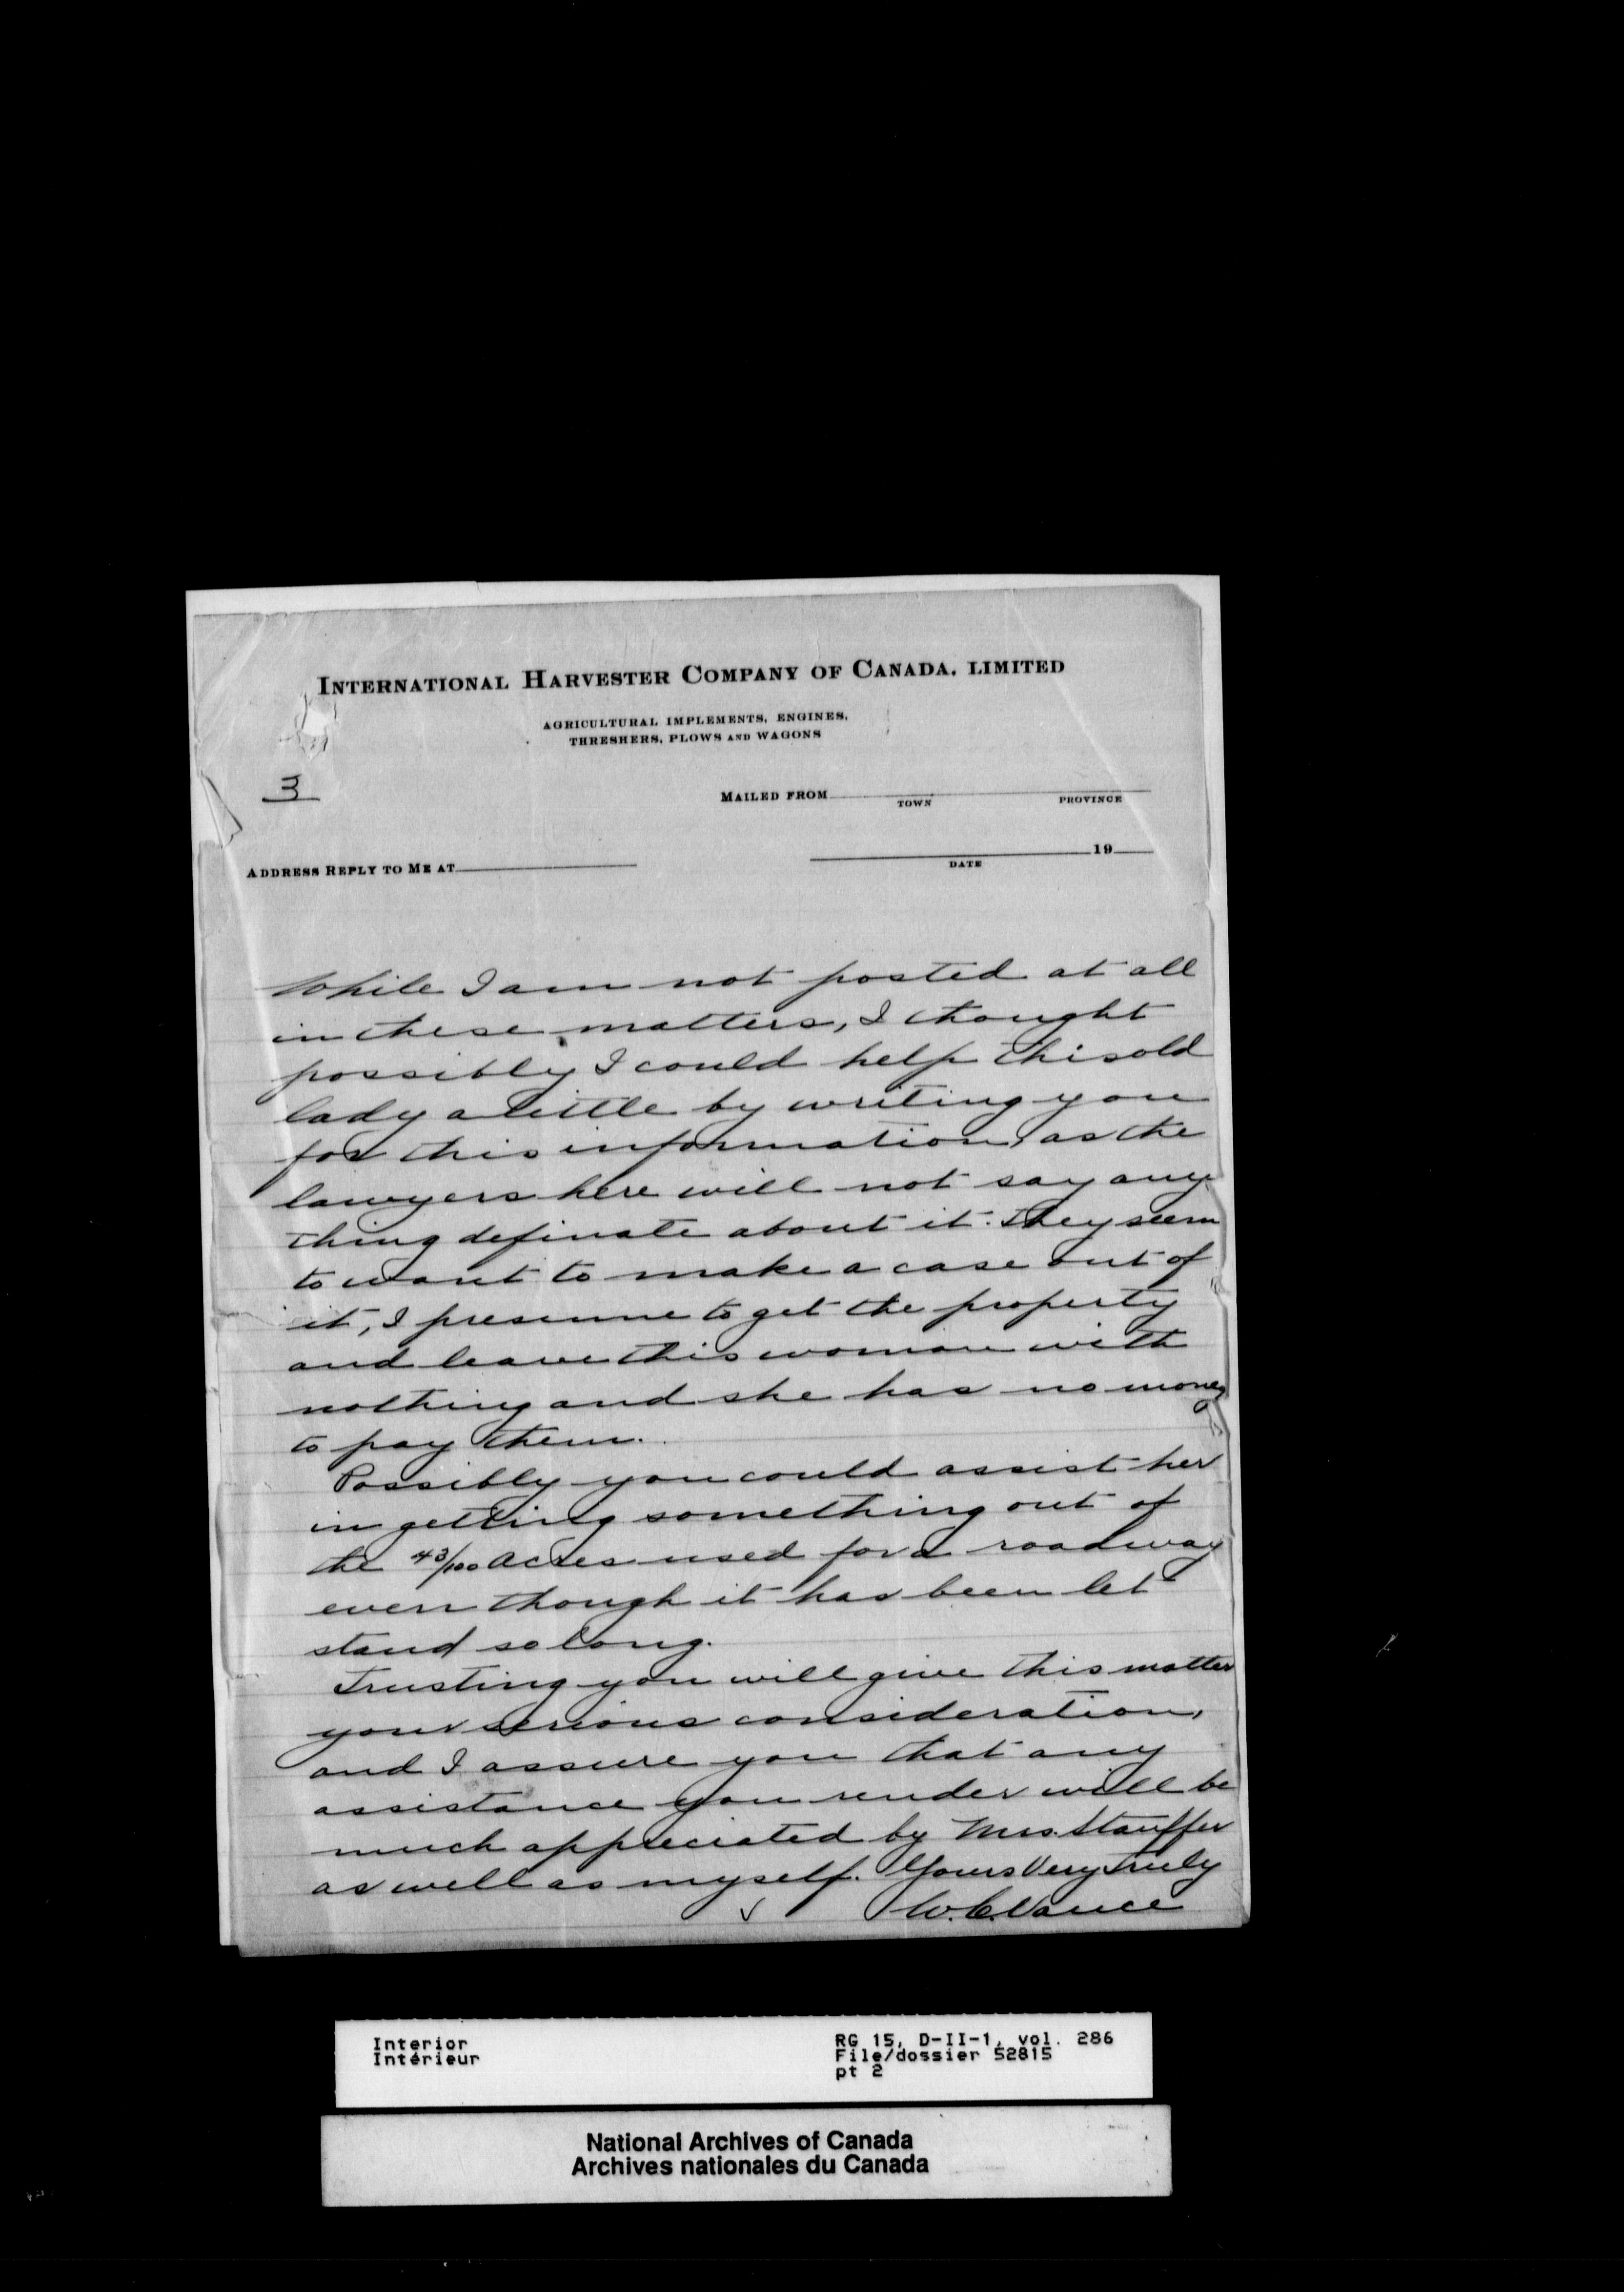 INTERNATIONAL HARVESTER COMPANY OF CANADA. LIMITED
AGRICULTURAL IMPLEMENTS, ENGINES,
THRESHERS, PLOWS AND WAGONS
3
MAILED FROM
TOWN PROVINCE
19
ADDRESS REPLY TO ME AT
DATE
While I am not posted at all
in these matters, I thought
possibly I could help this old
lady a little by writing you
for this information, as the
lawyers here will not say any
thing definate about it. They seem
to want to make a case out of
it, I presume to get the property
and leave this woman with
nothing and she has no money
to pay them.
Possibly you could assist her
in getting something out of
the 43/100 acres used for a roadway
even though it has been let
stand so long.
Trusting you will give this matter
your serious consideration,
and I assure you that any
assistance you render will be
much appreciated by Mrs. Stauffer
as well as myself. Yours Very Truly
W. C. Vance
Interior
Intérieur
RG 15, D-II-1, vol. 286
File/dossier 52815
pt 2
National Archives of Canada
Archives nationales du Canada